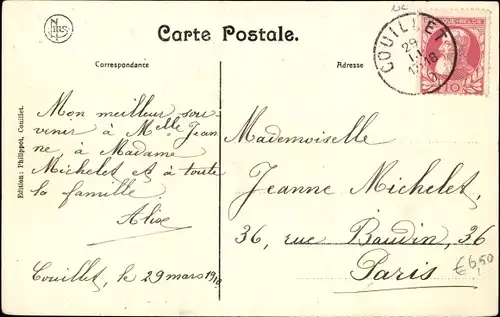 Carte Postale.
Correspondance
Adresse
Edition: Philippot, Couillet.
COUILLET
29
BELGIQUE-BELGIË
10
Mon meilleur sou-
venir à Melle Jean
ne à Madame
Michelet et à toute
la famille.
Alice
Couillet, le 29 mars 1910
Mademoiselle
Jeanne Michelet,
36, rue Baudin, 36
Paris
€6,50